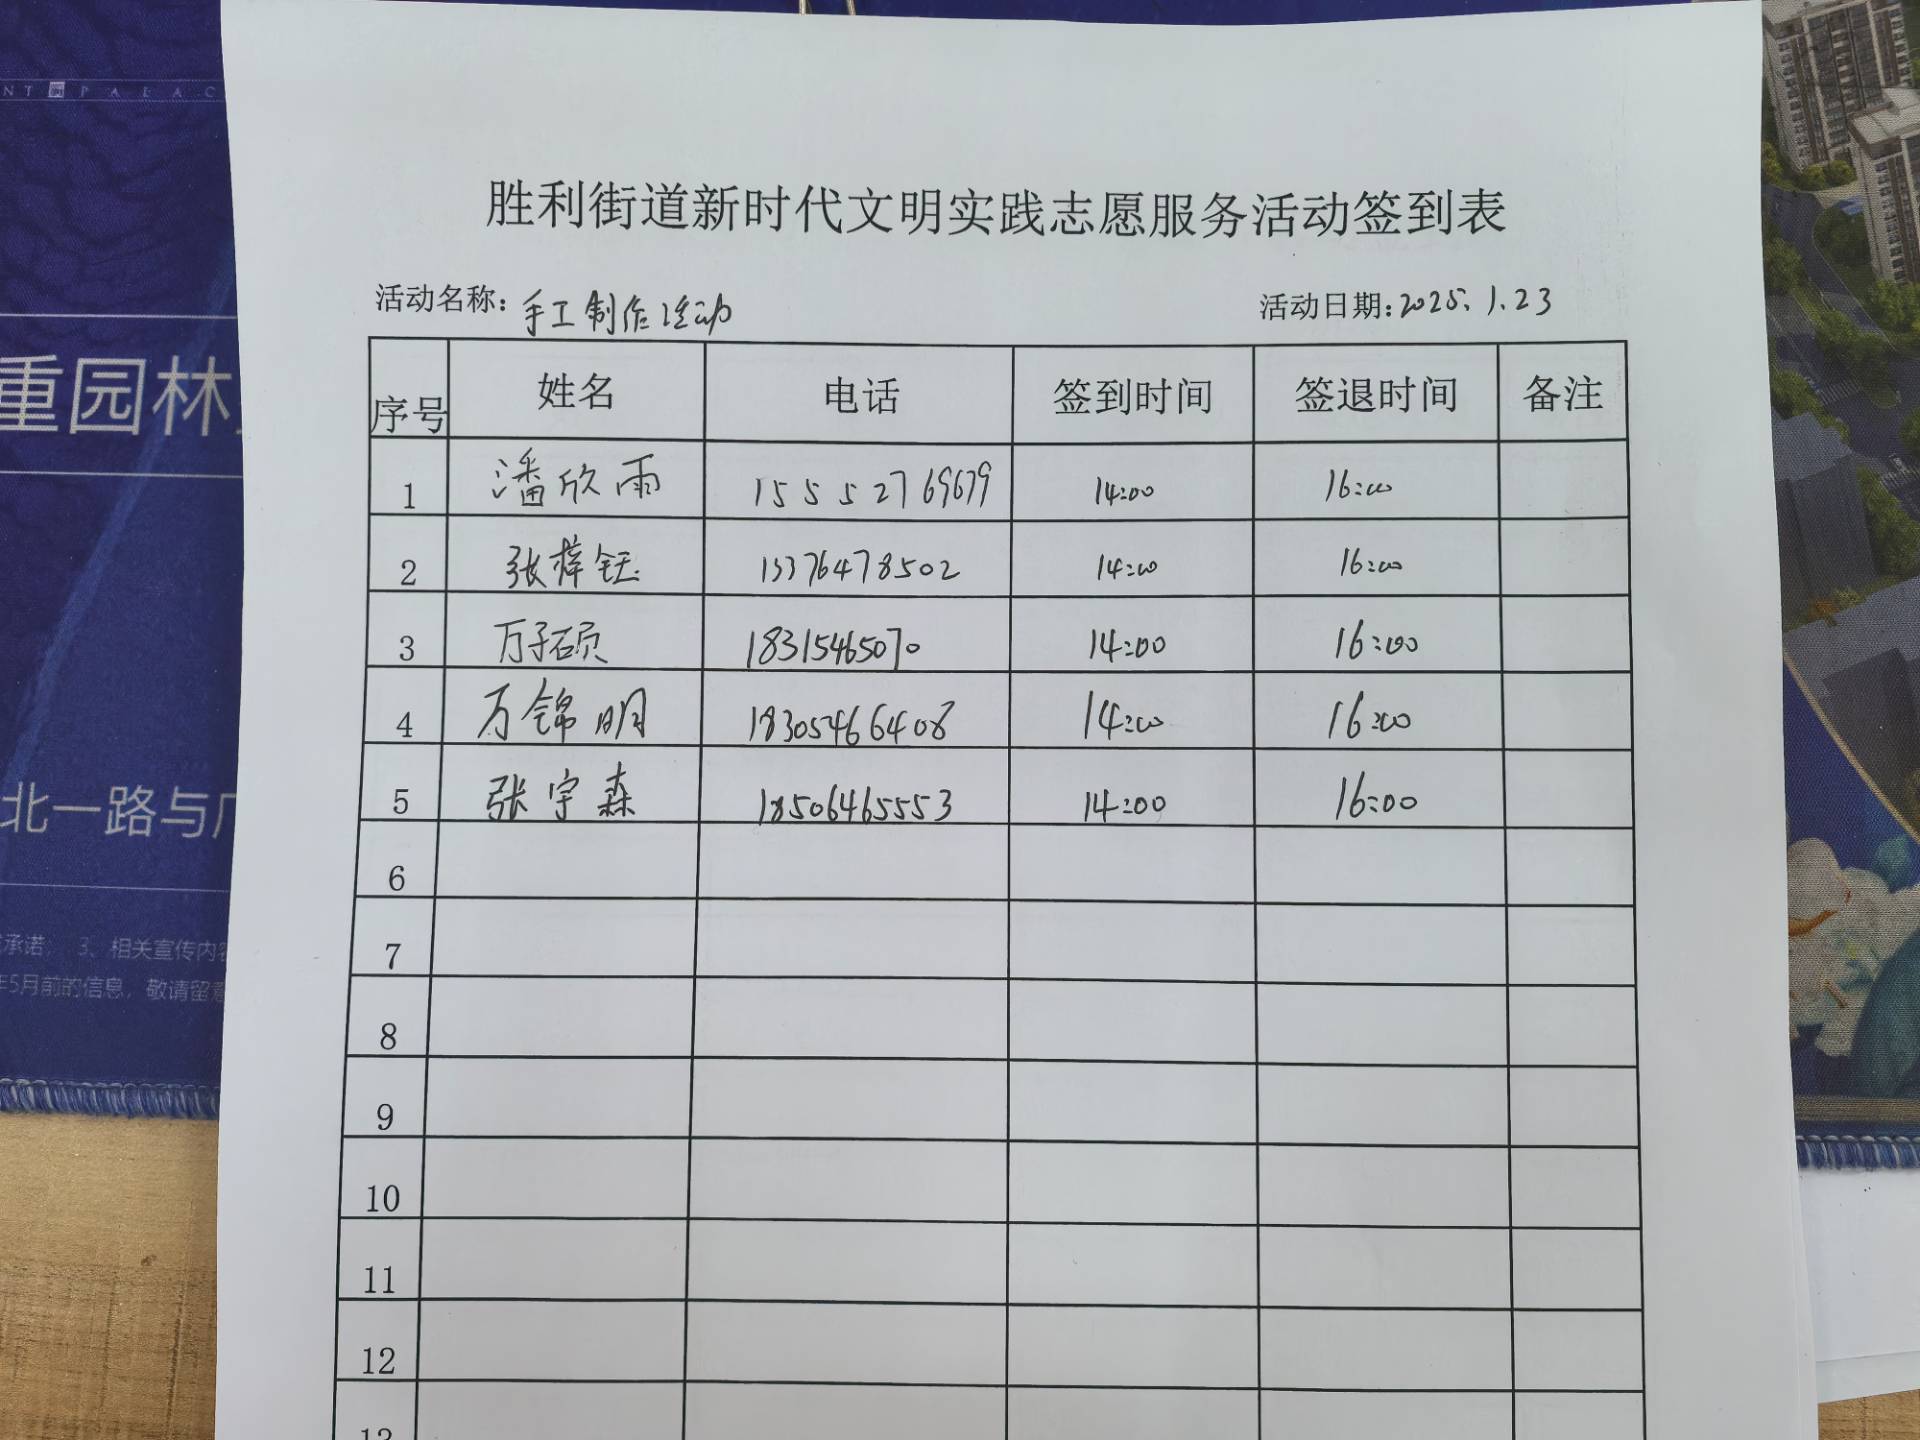 NT PALAC
重园林
北一路与广
承诺； 3、相关宣传内容
年5月前的信息，敬请留意
胜利街道新时代文明实践志愿服务活动签到表
活动名称：手工制作活动 活动日期：2025.1.23
序号 姓名 电话 签到时间 签退时间 备注
1 潘欣雨 15552769679 14:00 16:00
2 张梓钰 13376478502 14:00 16:00
3 万子硕 18315465070 14:00 16:00
4 万锦明 18305466408 14:00 16:00
5 张宇森 18506465553 14:00 16:00
6
7
8
9
10
11
12
13